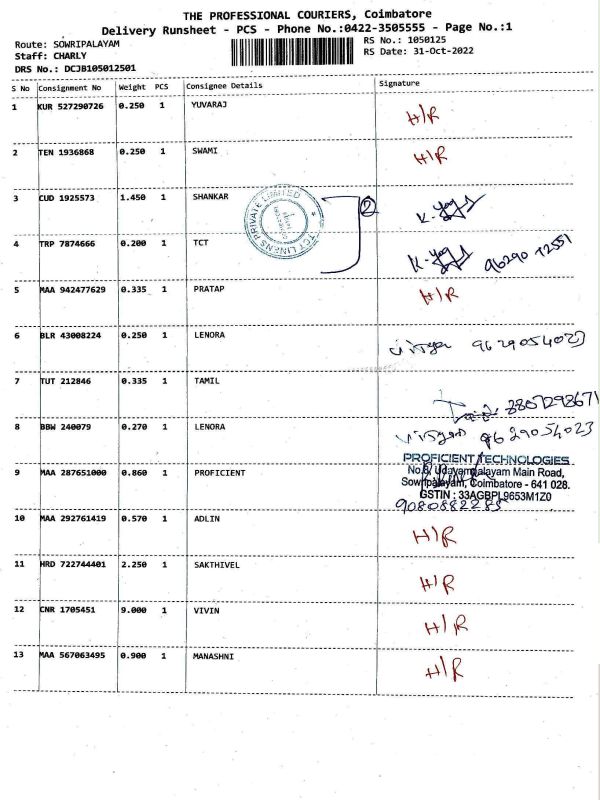 THE PROFESSIONAL COURIERS, Coimbatore
Delivery Runsheet - PCS - Phone No.:0422-3505555 - Page No.:1
Route: SOWRIPALAYAM
RS No.: 1050125
Staff: CHARLY
RS Date: 31-Oct-2022
DRS No.: DCJB105012501
S No Consignment No Weight PCS Consignee Details Signature
1 KUR 527290726 0.250 1 YUVARAJ H/R
2 TEN 1936868 0.250 1 SWAMI H/R
3 CUD 1925573 1.450 1 SHANKAR
TCT LINENS PRIVATE LIMITED
2
4 TRP 7874666 0.200 1 TCT 96290 72551
5 MAA 942477629 0.335 1 PRATAP H/R
6 BLR 43008224 0.250 1 LENORA 9629054023
7 TUT 212846 0.335 1 TAMIL
8 BBW 240079 0.270 1 LENORA 9629054023
PROFICIENT TECHNOLOGIES
No.6, Udayampalayam Main Road,
9 MAA 287651000 0.860 1 PROFICIENT
Sowripalayam, Coimbatore - 641 028.
GSTIN : 33AGBPL9653M1Z0
9080882285
10 MAA 292761419 0.570 1 ADLIN H/R
11 HRD 722744401 2.250 1 SAKTHIVEL H/R
12 CNR 1705451 9.000 1 VIVIN H/R
13 MAA 567063495 0.900 1 MANASHNI H/R